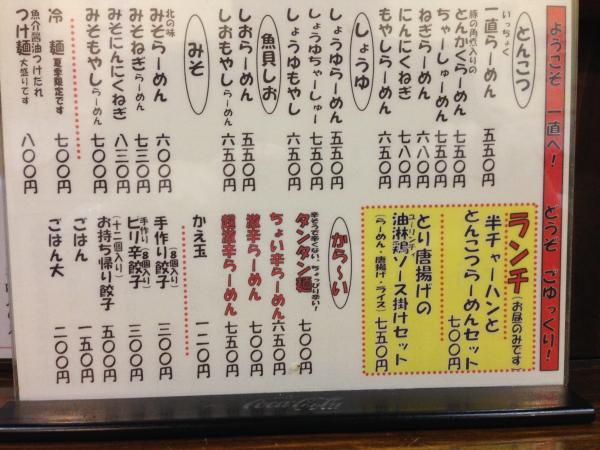 ようこそ 一直へ! どうぞ ごゆっくり!
とんこつ
いっちょく
一直らーめん 五五〇円
豚の角煮入りの
とんかくらーめん 七五〇円
ちゃーしゅーめん 七五〇円
ねぎらーめん 六八〇円
にんにくねぎ 七八〇円
もやしらーめん 六五〇円
しょうゆ
しょうゆらーめん 五五〇円
しょうゆちゃーしゅー 七五〇円
しょうゆもやし 六五〇円
魚貝しお
しおらーめん 五五〇円
しおもやしらーめん 六五〇円
みそ
北の味
みそらーめん 六〇〇円
みそねぎらーめん 七三〇円
みそにんにくねぎ 八三〇円
みそもやしらーめん 七〇〇円
冷麺 夏季限定です 七〇〇円
魚介醤油つけだれ
つけ麺 大盛りです 八〇〇円
ランチ(お昼のみです)
半チャーハンと
とんこつらーめんセット
七〇〇円
とり唐揚げの
ユーリンチィ
油淋鶏ソース掛けセット
(らーめん・唐揚げ・ライス) 七五〇円
から〜い
辛そうで辛くない、ちょっぴり辛い!
タンタン麺 七〇〇円
ちょい辛らーめん 六五〇円
激辛らーめん 七〇〇円
超激辛らーめん 七五〇円
かえ玉 一二〇円
手作り餃子(8個入り) 三〇〇円
手作り(8個入り)
ピリ辛餃子 三〇〇円
(十二個入り)
お持ち帰り餃子 五〇〇円
ごはん 一五〇円
ごはん大 二〇〇円
Coca-Cola